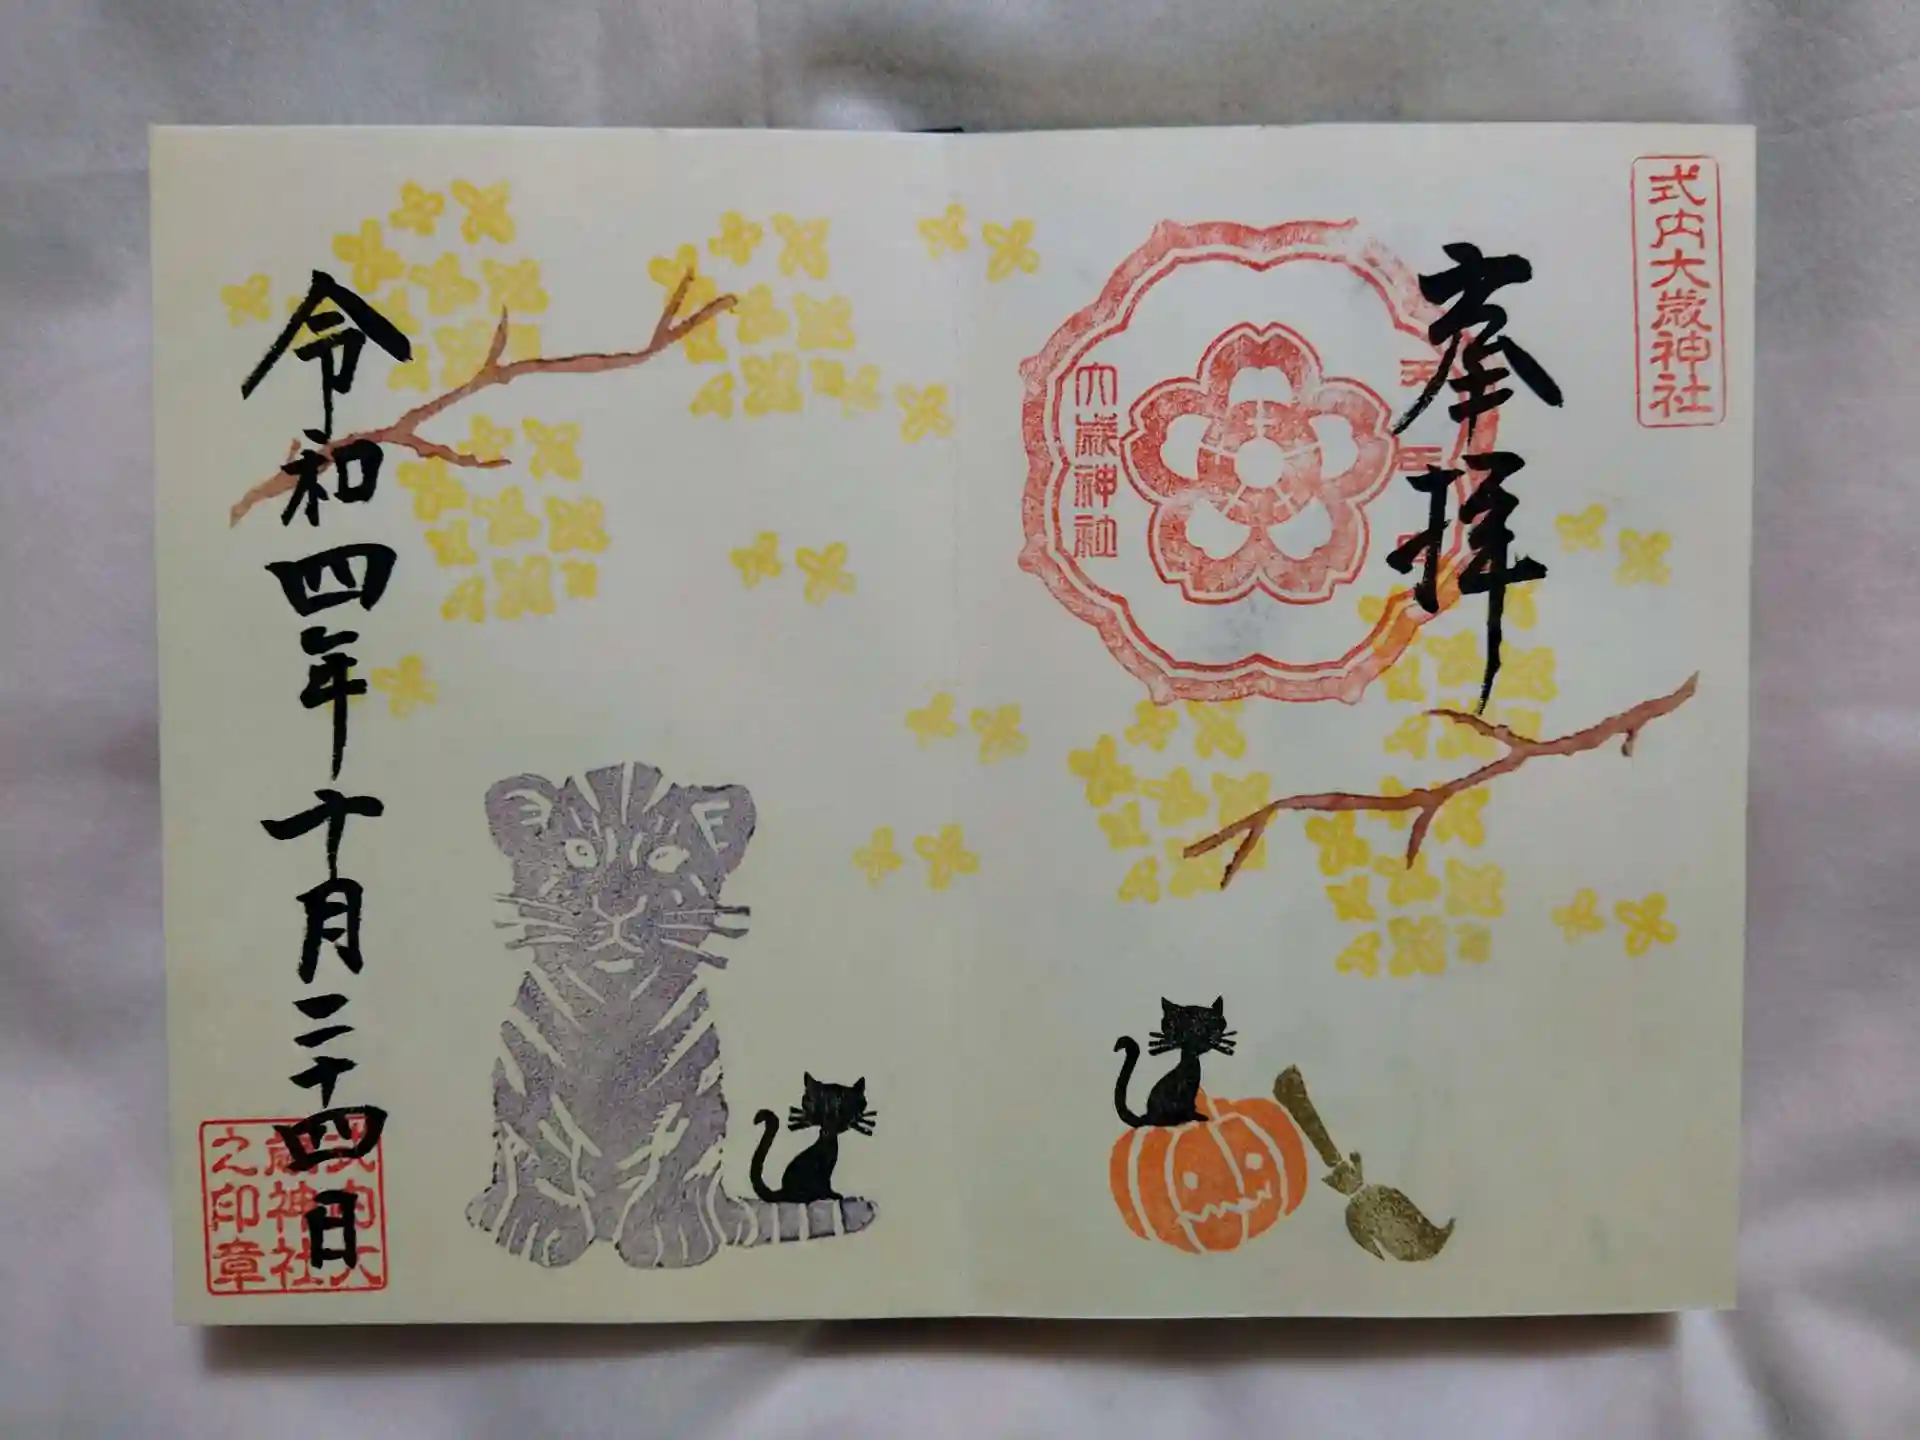 式内大歳神社
奉拝
天
大歳神社
令和四年十月二十四日
式内大
歳神社
之印章